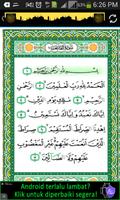 6:26 PM
سورة الفاتحة
بسم الله الرحمن الرحيم
الحمد لله رب العلمين
الرحمن الرحيم ملك يوم الدين
إياك نعبد وإياك نستعين
اهدنا الصرط المستقيم
صرط الذين أنعمت عليهم
غير المغضوب عليهم
ولا الضالين
Android terlalu lambat?
Klik untuk diperbaiki segera!